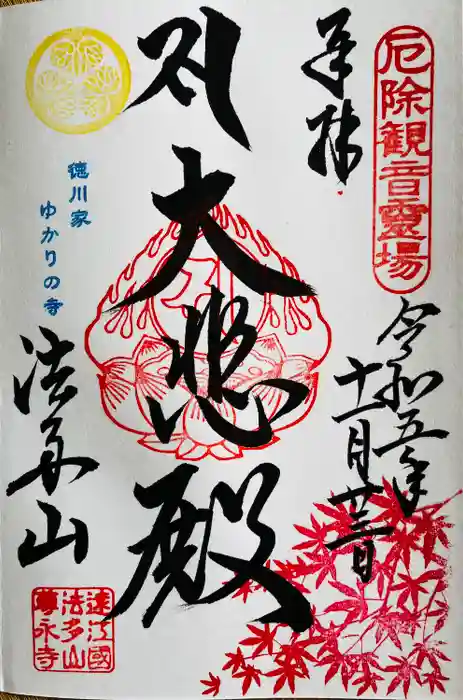 厄除観音靈場
奉拝
令和五年
十一月廿三日
大悲殿
徳川家
ゆかりの寺
法多山
遠江國
法多山
尊永寺